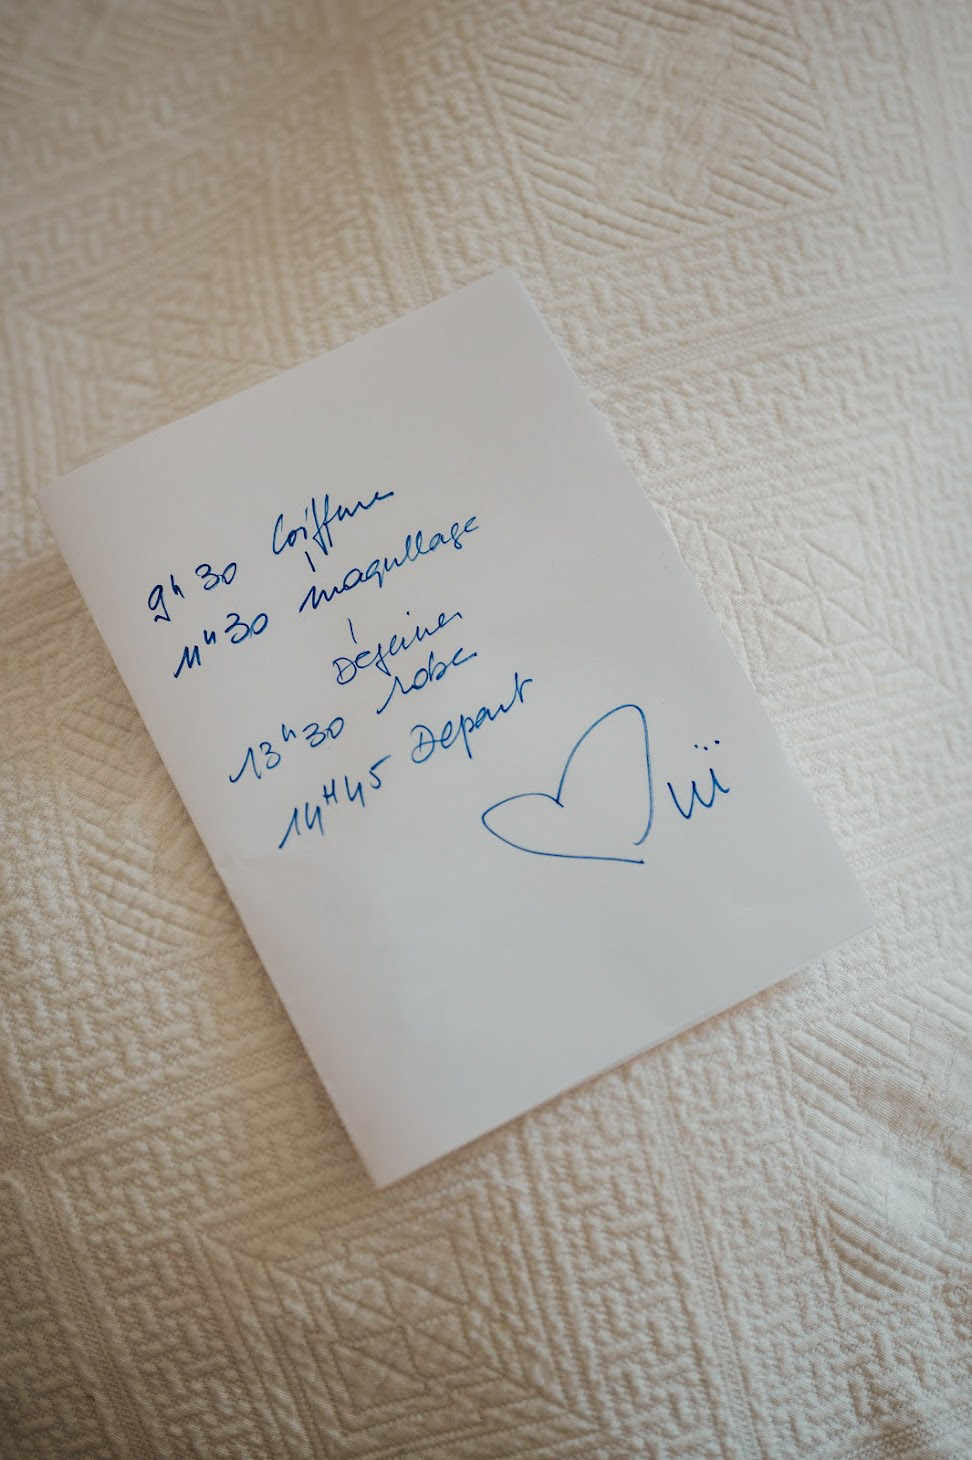 9h30 Coiffure
11h30 maquillage
Déjeuner
13h30 robe
14H45 Départ